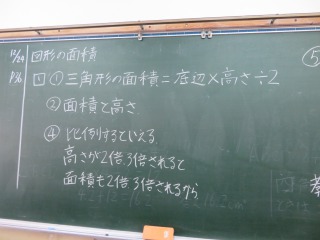 12/24 図形の面積
P.76 1 ①三角形の面積=底辺×高さ÷2
②面積と高さ
④比例するといえる
高さが2倍、3倍されると
面積も2倍、3倍されるから
⑤